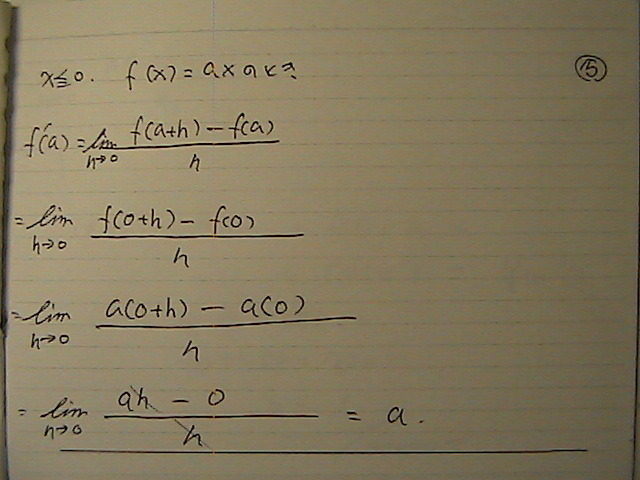 x≦0. f(x)=axのとき
⑮
f'(a)=lim h→0 f(a+h)-f(a) / h
=lim h→0 f(0+h)-f(0) / h
=lim h→0 a(0+h)-a(0) / h
=lim h→0 ah-0 / h = a.